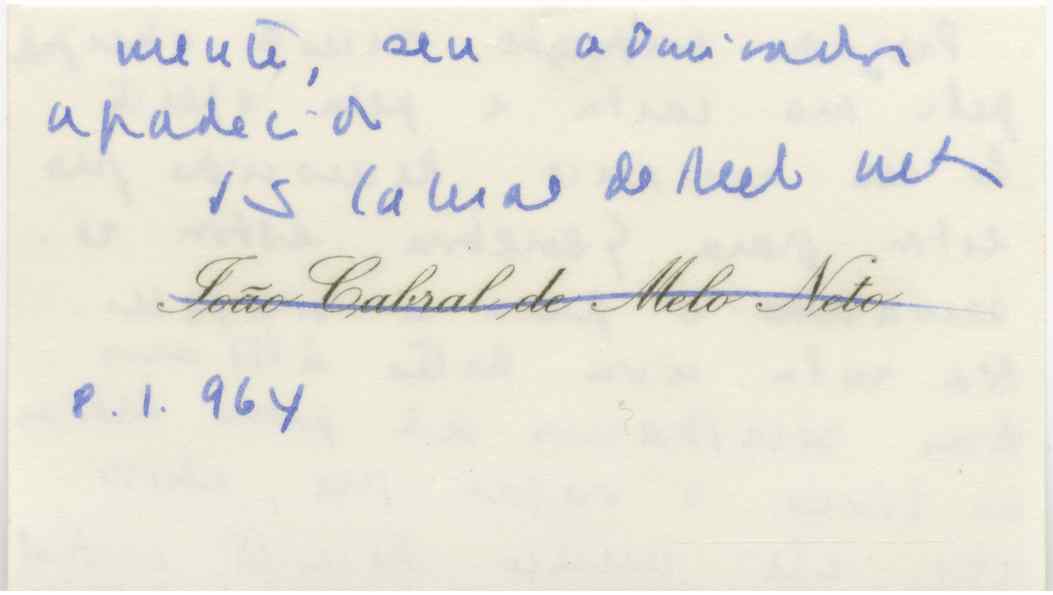 mente, seu admirador
agradecido
JS Cabral de Melo Neto
João Cabral de Melo Neto
8.1.964